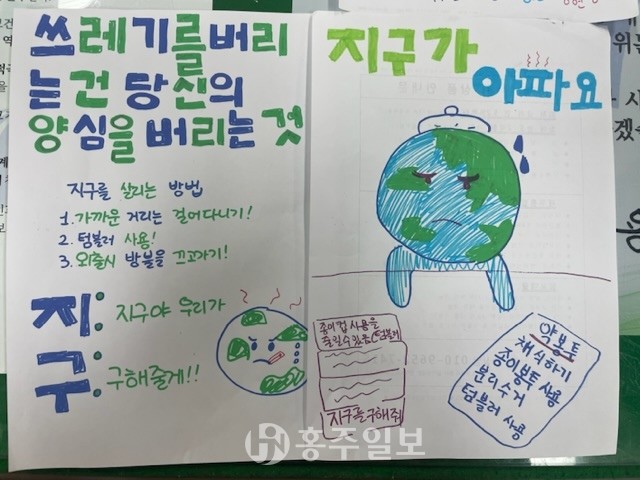 쓰레기를버리
는건 당신의
양심을 버리는 것
지구를 살리는 방법
1. 가까운 거리는 걸어다니기!
2. 텀블러 사용!
3. 외출시 방불을 끄고가기!
지: 지구야 우리가
구: 구해줄게!!
지구가
아파요
종이컵 사용을
줄일수있음(텀블러
지구를구해줘
약봉투
채식하기
종이봉투 사용
분리수거
텀블러 사용
홍주일보